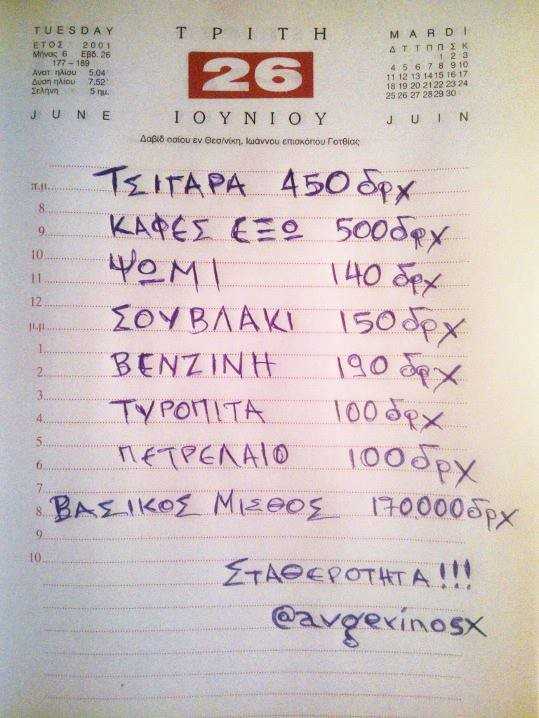 TUESDAY
ΕΤΟΣ 2001
Μήνας 6 Εβδ. 26
177 – 189
Ανατ. ηλίου 5,04΄
Δύση ηλίου 7,52΄
Σελήνη 5 ημ.
JUNE
ΤΡΙΤΗ
26
ΙΟΥΝΙΟΥ
MARDI
Δ Τ Τ Π Π Σ Κ
1 2 3
4 5 6 7 8 9 10
11 12 13 14 15 16 17
18 19 20 21 22 23 24
25 26 27 28 29 30
JUIN
Δαβίδ οσίου εν Θεσ/νίκη, Ιωάννου επισκόπου Γοτθίας
π.μ. ΤΣΙΓΑΡΑ 450 δρχ
8
9 ΚΑΦΕΣ ΕΞΩ 500 δρχ
10
11 ΨΩΜΙ 140 δρχ
12
μ.μ. ΣΟΥΒΛΑΚΙ 150 δρχ
1
2 ΒΕΝΖΙΝΗ 190 δρχ
3
4 ΤΥΡΟΠΙΤΑ 100 δρχ
5
6 ΠΕΤΡΕΛΑΙΟ 100 δρχ
7
8 ΒΑΣΙΚΟΣ ΜΙΣΘΟΣ 170.000 δρχ
9
10 ΣΤΑΘΕΡΟΤΗΤΑ!!!
@avgerinosx